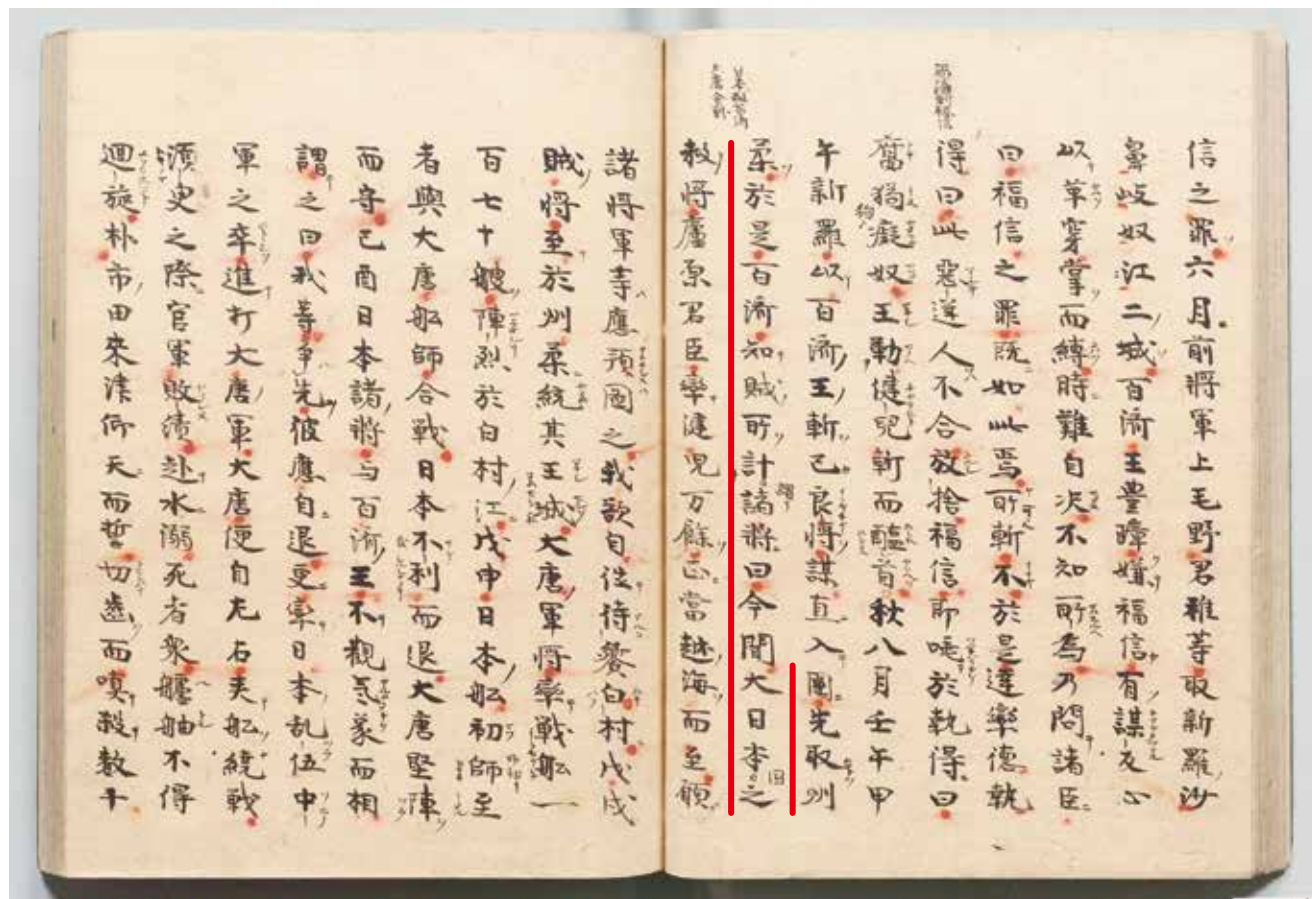 信之罪六月前將軍上毛野君稚等取新羅沙
鼻岐奴江二城百濟王豊璋嫌福信有謀反心
以革穿掌而縛時難自决不知所為乃問諸臣
曰福信之罪旣如此焉可斬不於是達率德執
得曰此惡逆人不合放捨福信即唾於執得曰
腐狗癡奴王勒健兒斬而醢首秋八月壬午甲
午新羅以百濟王斬己良將謀直入國先取州
柔於是百濟知賊所計謂諸將曰今聞大日本國之
救將廬原君臣率健兒万餘正當越海而至願
諸將軍等應預圖之我欲自往待饗白村戊戌
賊將至於州柔繞其王城大唐軍將率戰舩一
百七十艘陣烈於白村江戊申日本舩初師至
者與大唐舩師合戰日本不利而退大唐堅陣
而守己酉日本諸將与百濟王不觀氣象而相
謂之曰我等爭先彼應自退更率日本乱伍中
軍之卒進打大唐軍大唐便自左右夾舩繞戰
須史之際官軍敗績赴水溺死者衆艫舳不得
廻旋朴市田來津仰天而誓切齒而嗔殺數十